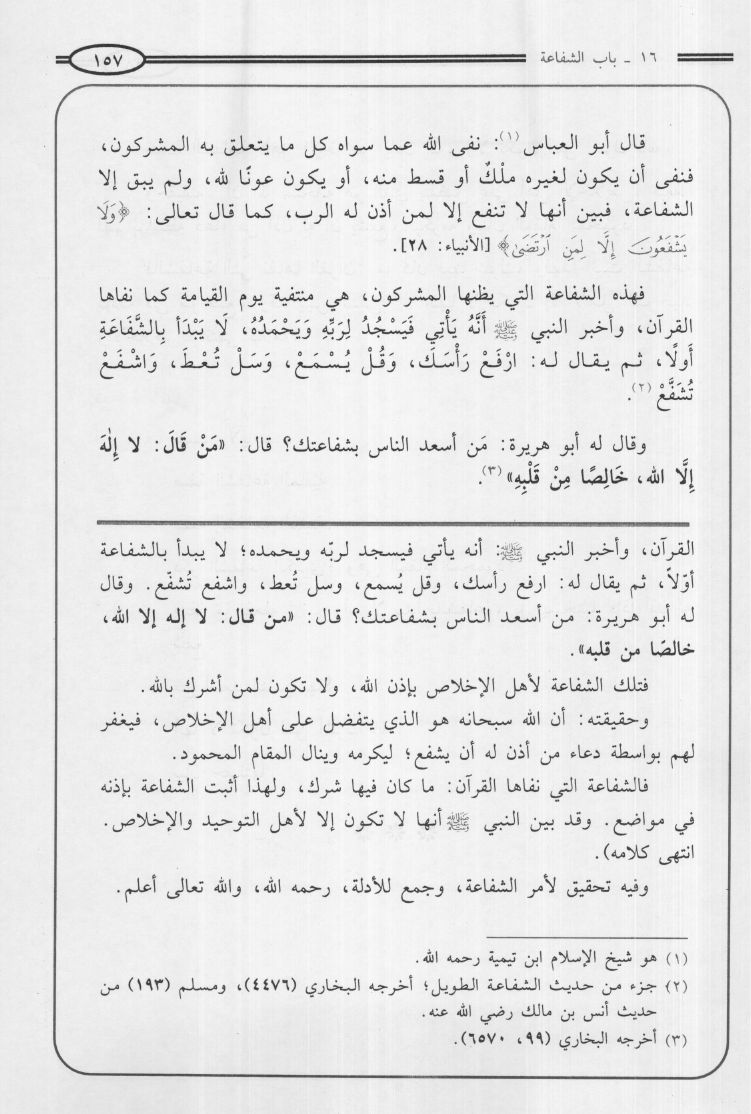 ١٦ ـ باب الشفاعة
١٥٧
قال أبو العباس(١): نفى الله عما سواه كل ما يتعلق به المشركون،
فنفى أن يكون لغيره ملْكٌ أو قسط منه، أو يكون عونًا لله، ولم يبق إلا
الشفاعة، فبين أنها لا تنفع إلا لمن أذن له الرب، كما قال تعالى: ﴿وَلَا
يَشْفَعُونَ إِلَّا لِمَنِ ٱرْتَضَىٰ﴾ [الأنبياء: ٢٨].
فهذه الشفاعة التي يظنها المشركون، هي منتفية يوم القيامة كما نفاها
القرآن، وأخبر النبي ﷺ أَنَّهُ يَأْتِي فَيَسْجُدُ لِرَبِّهِ وَيَحْمَدُهُ، لَا يَبْدَأ بِالشَّفَاعَةِ
أَولًا، ثم يقال له: ارْفَعْ رَأْسَكَ، وَقُلْ يُسْمَعْ، وَسَلْ تُعْطَ، وَاشْفَعْ
تُشَفَّعْ(٢).
وقال له أبو هريرة: مَن أسعد الناس بشفاعتك؟ قال: «مَنْ قَالَ: لا إِلٰهَ
إِلَّا الله، خَالِصًا مِنْ قَلْبِهِ»(٣).
القرآن، وأخبر النبي ﷺ: أنه يأتي فيسجد لربّه ويحمده؛ لا يبدأ بالشفاعة
أوّلاً، ثم يقال له: ارفع رأسك، وقل يُسمع، وسل تُعط، واشفع تُشفّع. وقال
له أبو هريرة: من أسعد الناس بشفاعتك؟ قال: «من قال: لا إله إلا الله،
خالصًا من قلبه».
فتلك الشفاعة لأهل الإخلاص بإذن الله، ولا تكون لمن أشرك بالله.
وحقيقته: أن الله سبحانه هو الذي يتفضل على أهل الإخلاص، فيغفر
لهم بواسطة دعاء من أذن له أن يشفع؛ ليكرمه وينال المقام المحمود.
فالشفاعة التي نفاها القرآن: ما كان فيها شرك، ولهذا أثبت الشفاعة بإذنه
في مواضع. وقد بين النبي ﷺ أنها لا تكون إلا لأهل التوحيد والإخلاص.
انتهى كلامه).
وفيه تحقيق لأمر الشفاعة، وجمع للأدلة، رحمه الله، والله تعالى أعلم.
(١) هو شيخ الإسلام ابن تيمية رحمه الله.
(٢) جزء من حديث الشفاعة الطويل؛ أخرجه البخاري (٤٤٧٦)، ومسلم (١٩٣) من
حديث أنس بن مالك رضي الله عنه.
(٣) أخرجه البخاري (٩٩، ٦٥٧٠).